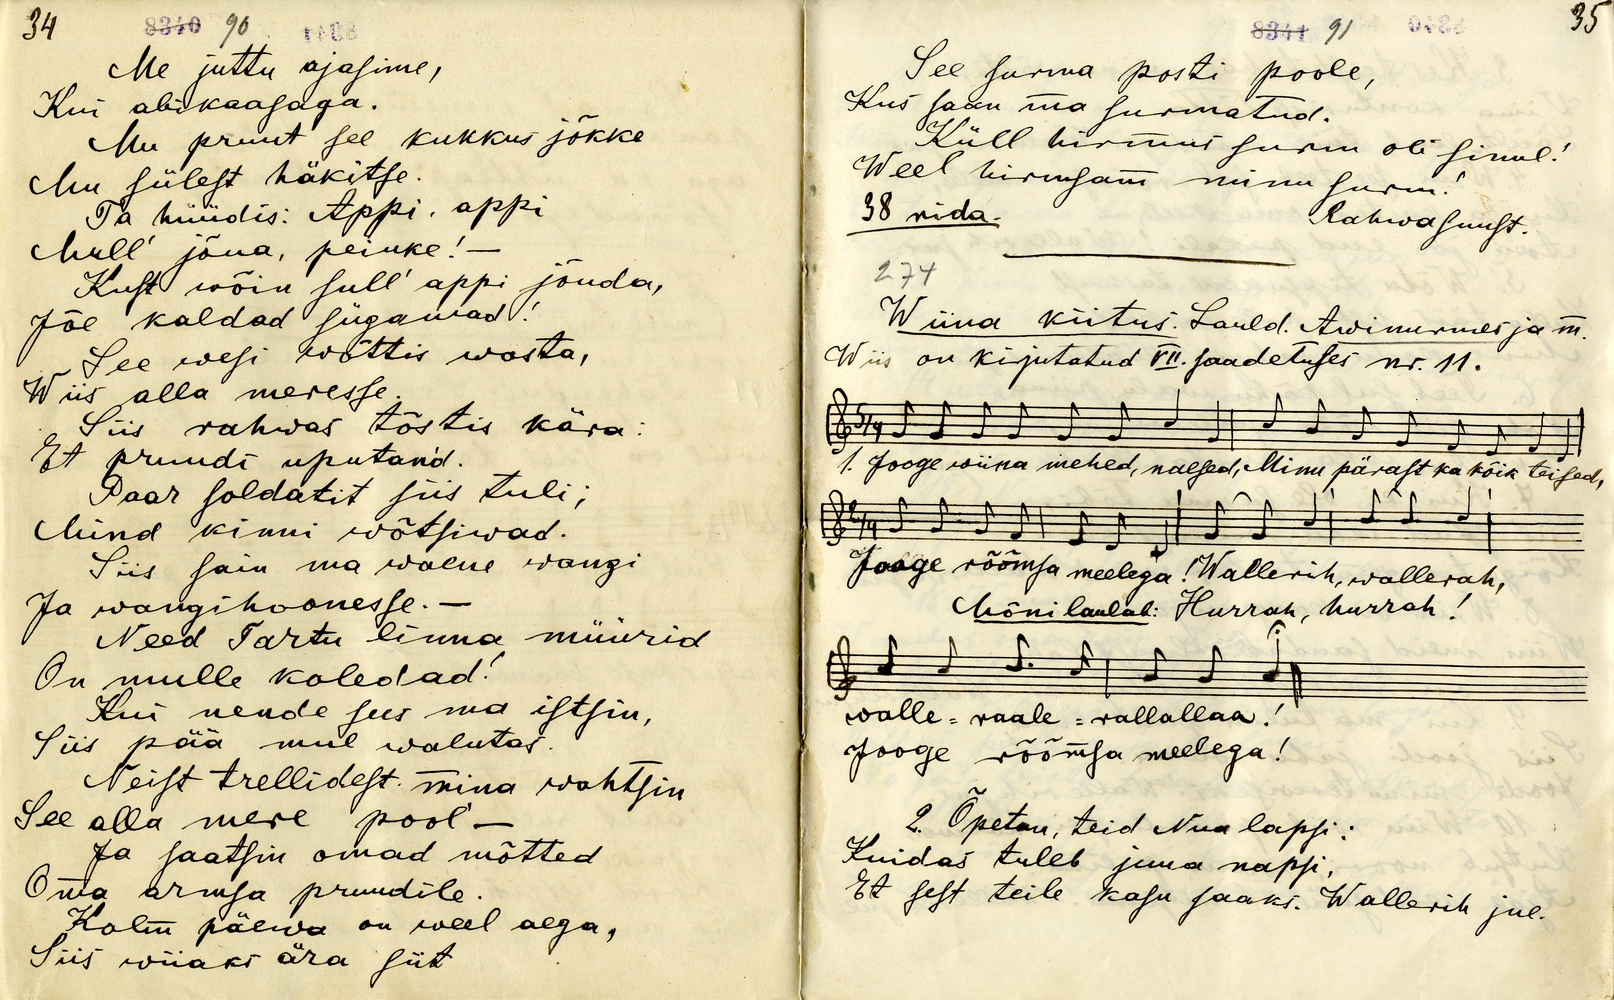 34
8340 90
Me juttu ajasime,
Kui abikaasaga.
Mu pruut see kukkus jõkke
Mu sülest häkitse.
Ta hüüdis: Appi, appi
Mull' jõua, peiuke! —
Kust wõin sull' appi jõuda,
Jõe kaldad sügawad!
See wesi wõttis wasta,
Wiis alla meresse.
Siis rahwas tõstis kära:
Et pruudi uputand.
Paar soldatit siis tuli;
Mind kinni wõtsiwad.
Siis sain ma waene wangi
Ja wangihoonesse. —
Need Tartu linna müürid
On mulle koledad!
Kui nende sees ma istsin,
Siis pää mul walutas.
Neist trellidest mina wahtsin
See alla mere pool —
Ja saatsin omad mõtted
Oma armsa pruudile.
Kolm päewa on weel aega,
Siis wiiaks ära siit
8341 91
35
See surma posti poole,
Kus saan ma surmatud.
Küll hirmus surm oli sinul!
Weel hirmsam minu surm!
38 rida.
Rahwasuust.
274
Wiina kiitus. Lauld. Awinurmes ja m.
Wiis on kirjutatud VII. saadetuses nr. 11.
5/4
1. Jooge wiina mehed, naesed, Minu pärast ka kõik teised,
2/4
Jooge rõõmsa meelega! Wallerih, wallerah,
Mõni laulab: Hurrah, hurrah!
walle = raale = rallallaa!
Jooge rõõmsa meelega!
2. Õpetan, teid Nua lapsi:
Kuidas tuleb juua napsi,
Et sest teile kasu saaks. Wallerih jne.